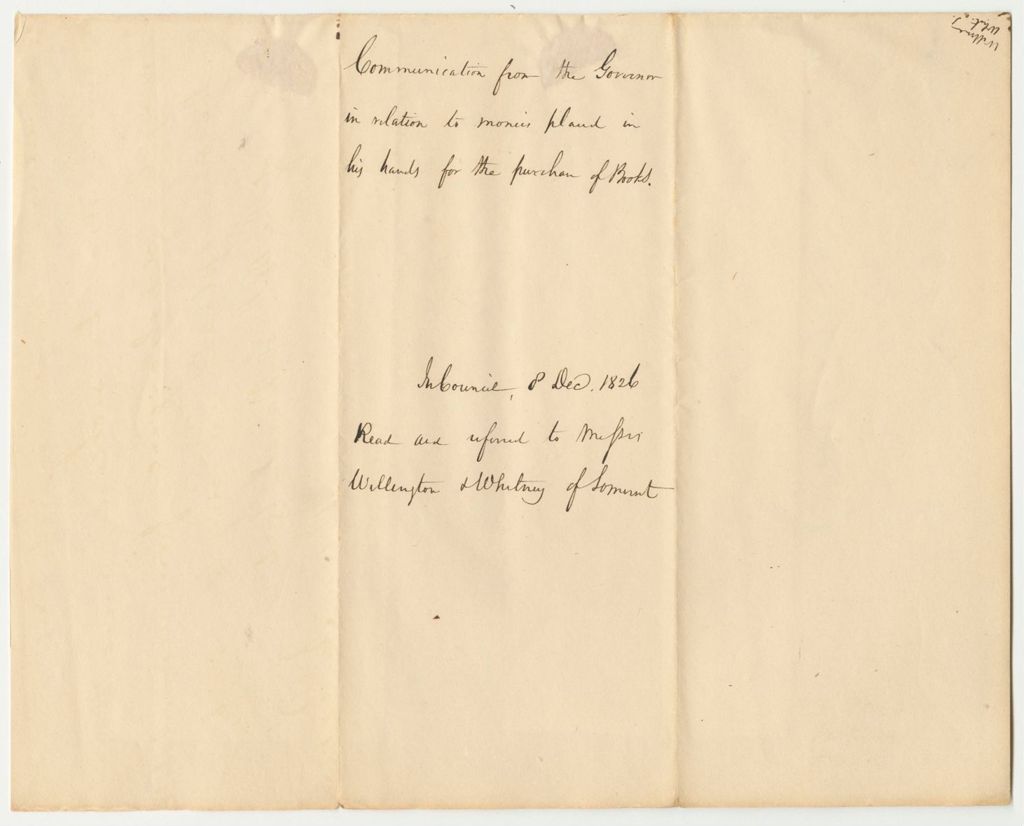 Communication from the Governor
in relation to monies placed in
his hands for the purchase of Books.
In Council, 8 Dec. 1826
Read and referred to Messrs
Wellington & Whitney of Somerset